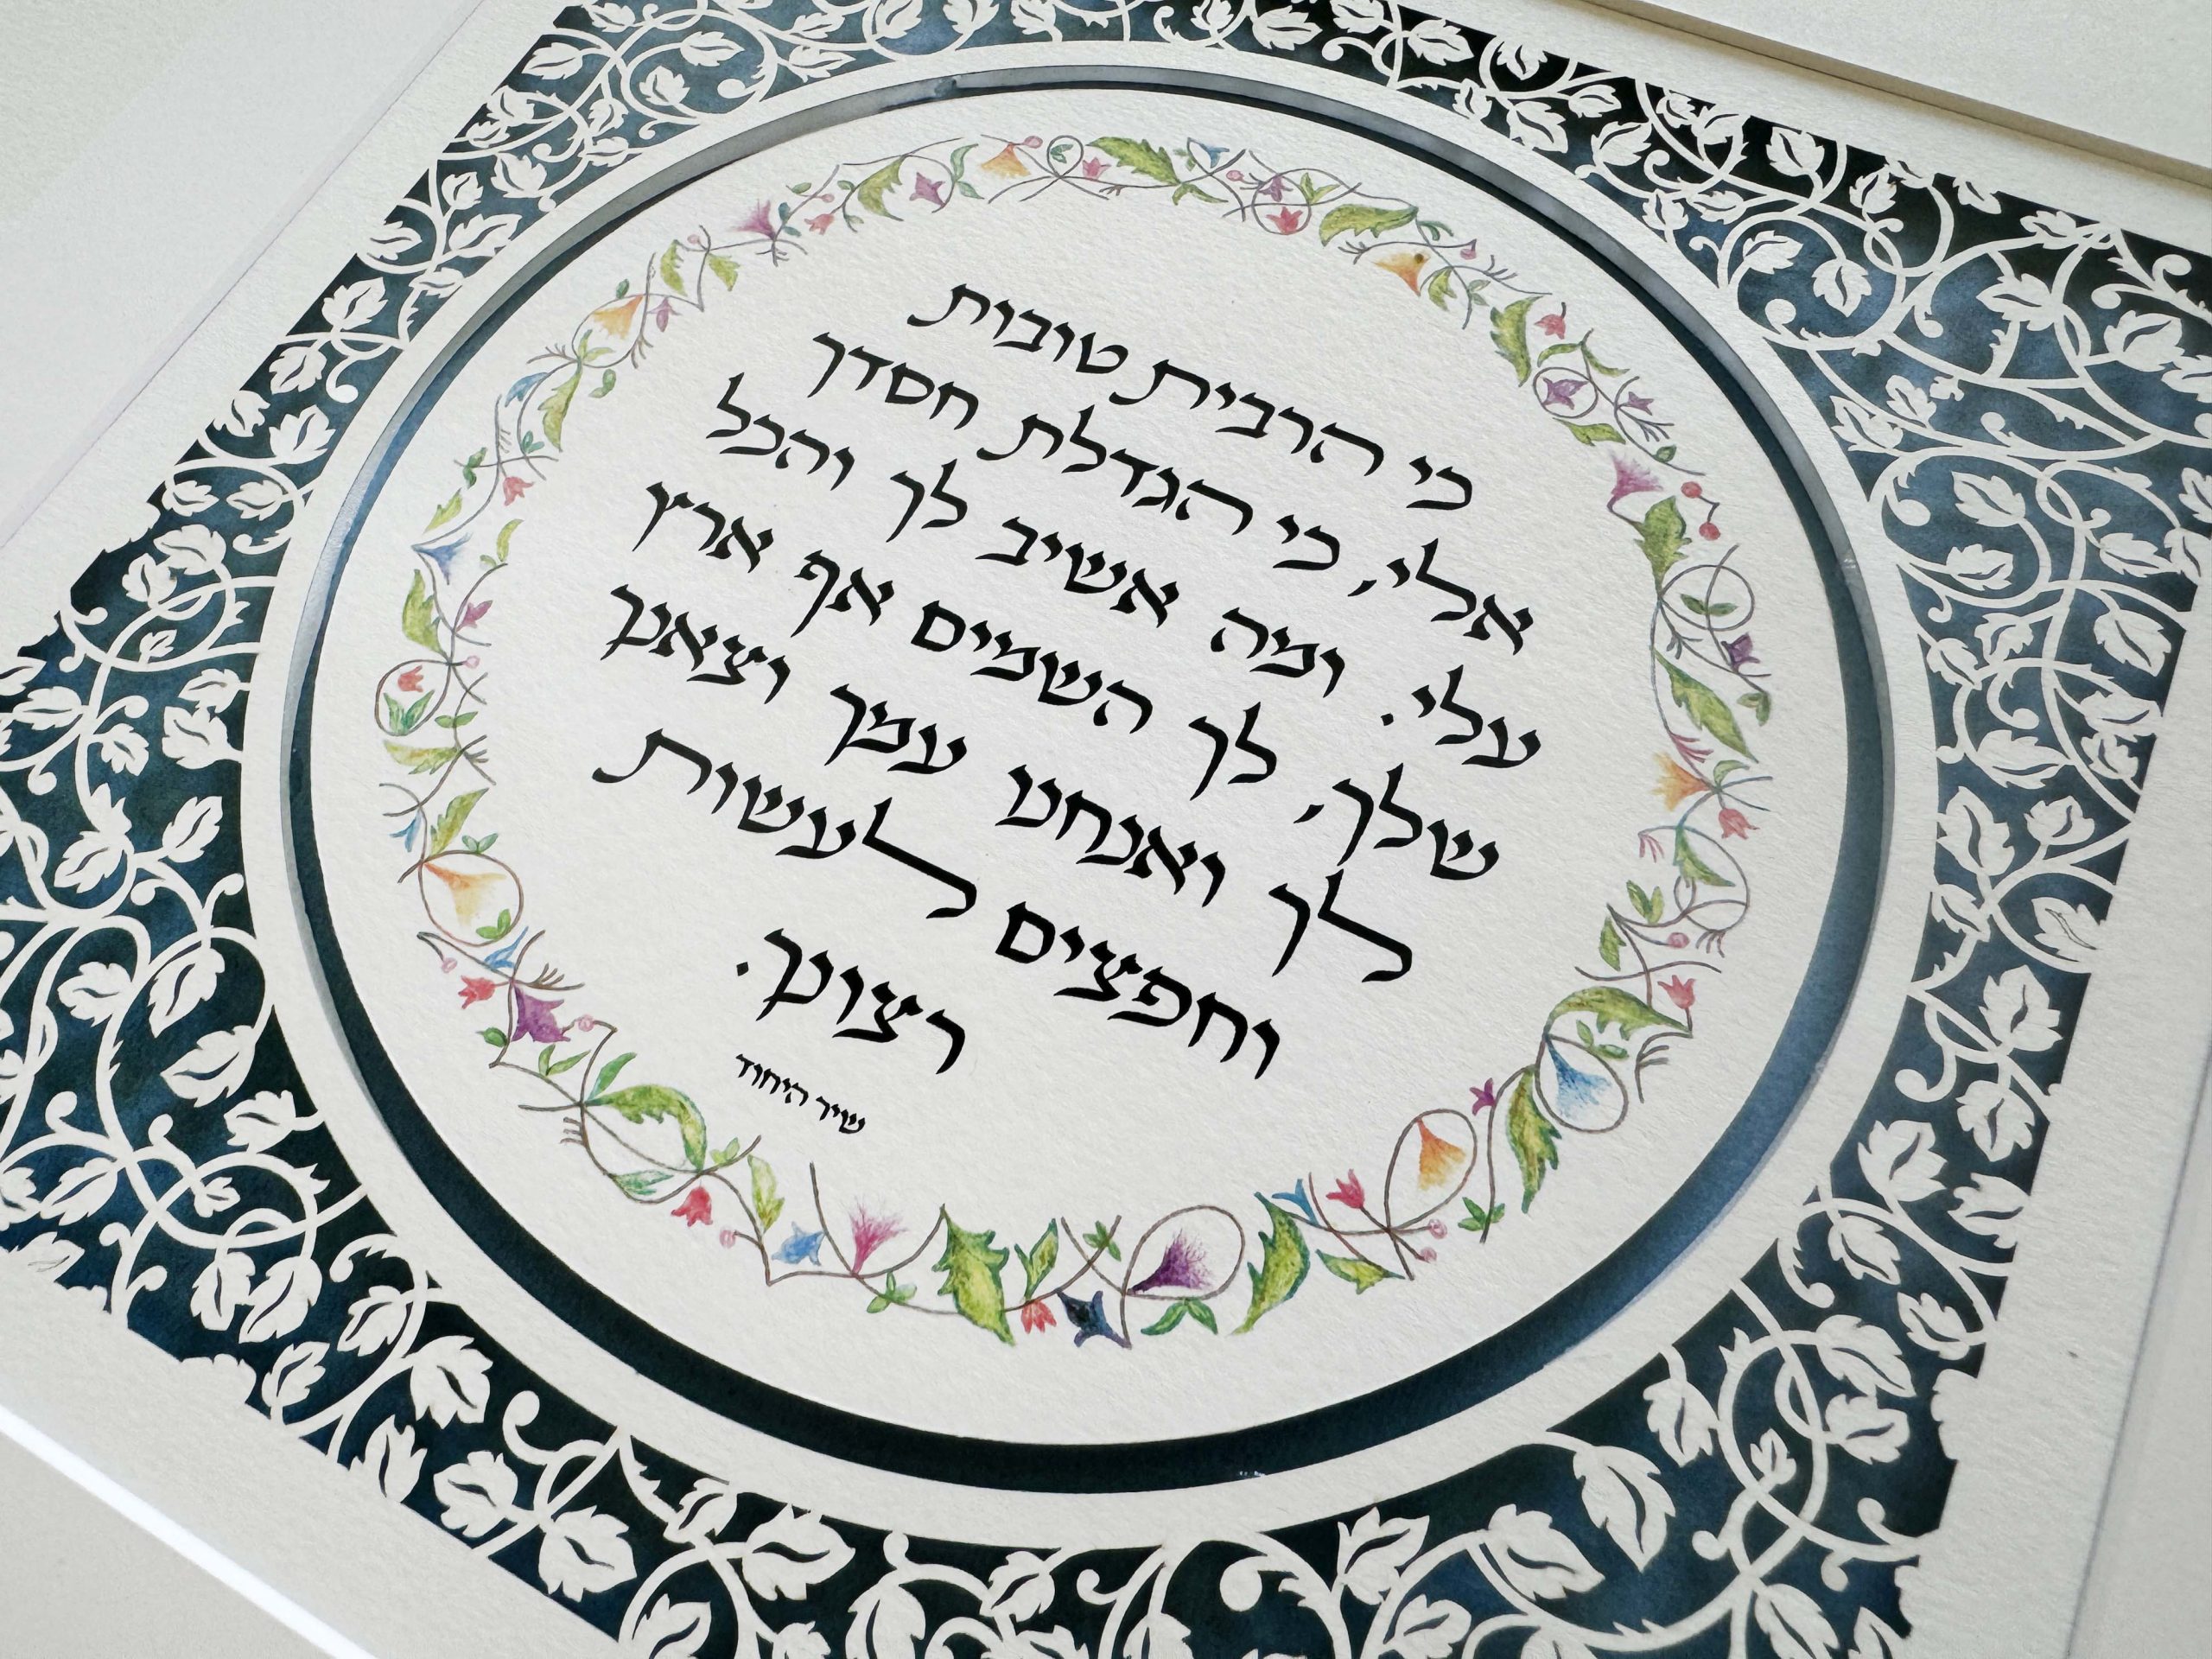 כי הרבית טובות
אלי, כי הגדלת חסדך
עלי. ומה אשיב לך והכל
שלך, לך השמים אף ארץ
לך ואנחנו עמך וצאנך
וחפצים לעשות
רצונך.
שיר היחוד